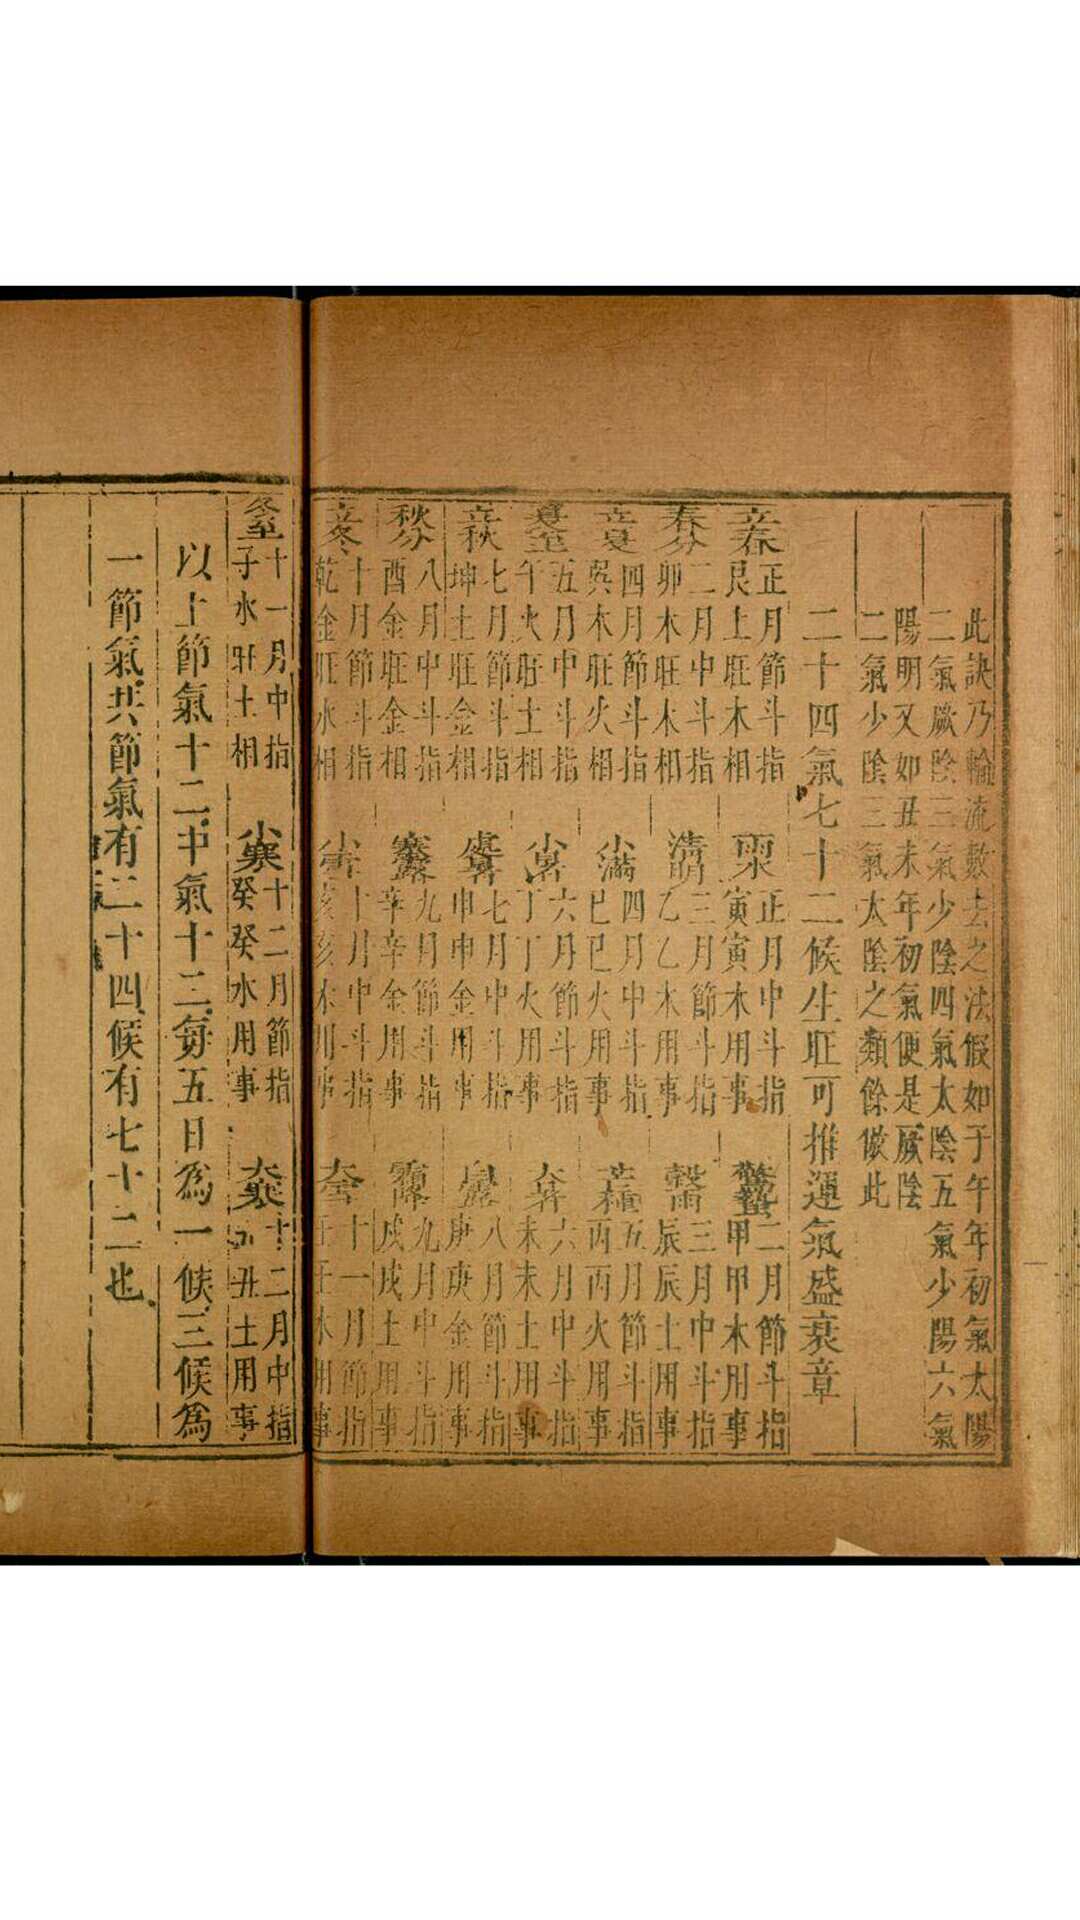 此訣乃輪流數去之法假如子午年初氣太陽
二氣厥陰三氣少陰四氣太陰五氣少陽六氣
陽明又如丑未年初氣便是厥陰
二氣少陰三氣太陰之類餘倣此
二十四氣七十二候生旺可推運氣盛衰章
立春
正月節斗指
艮土旺木相
雨水
正月中斗指
寅寅木用事
驚蟄
二月節斗指
甲甲木用事
春分
二月中斗指
卯木旺木相
清明
三月節斗指
乙乙木用事
穀雨
三月中斗指
辰辰土用事
立夏
四月節斗指
巽木旺火相
小滿
四月中斗指
巳巳火用事
芒種
五月節斗指
丙丙火用事
夏至
五月中斗指
午火旺土相
小暑
六月節斗指
丁丁火用事
大暑
六月中斗指
未未土用事
立秋
七月節斗指
坤土旺金相
處暑
七月中斗指
申申金用事
白露
八月節斗指
庚庚金用事
秋分
八月中斗指
酉金旺金相
寒露
九月節斗指
辛辛金用事
霜降
九月中斗指
戌戌土用事
立冬
十月節斗指
乾金旺水相
小雪
十月中斗指
亥亥水用事
大雪
十一月節指
壬壬水用事
冬至
十一月中指
子水旺土相
小寒
十二月節指
癸癸水用事
大寒
十二月中指
丑土用事
以上節氣十二中氣十二每五日為一候三候為
一節氣共節氣有二十四候有七十二也